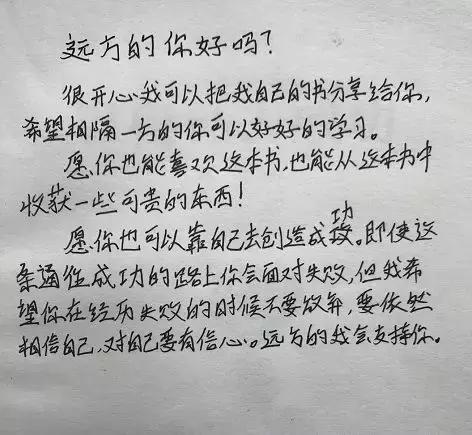 远方的你好吗？
很开心我可以把我自己的书分享给你，
希望相隔一方的你可以好好的学习。
愿你也能喜欢这本书，也能从这本书中
收获一些可贵的东西！
愿你也可以靠自己去创造成功。即使这
条通往成功的路上你会面对失败，但我希
望你在经历失败的时候不要放弃，要依然
相信自己，对自己要有信心。远方的我会支持你。